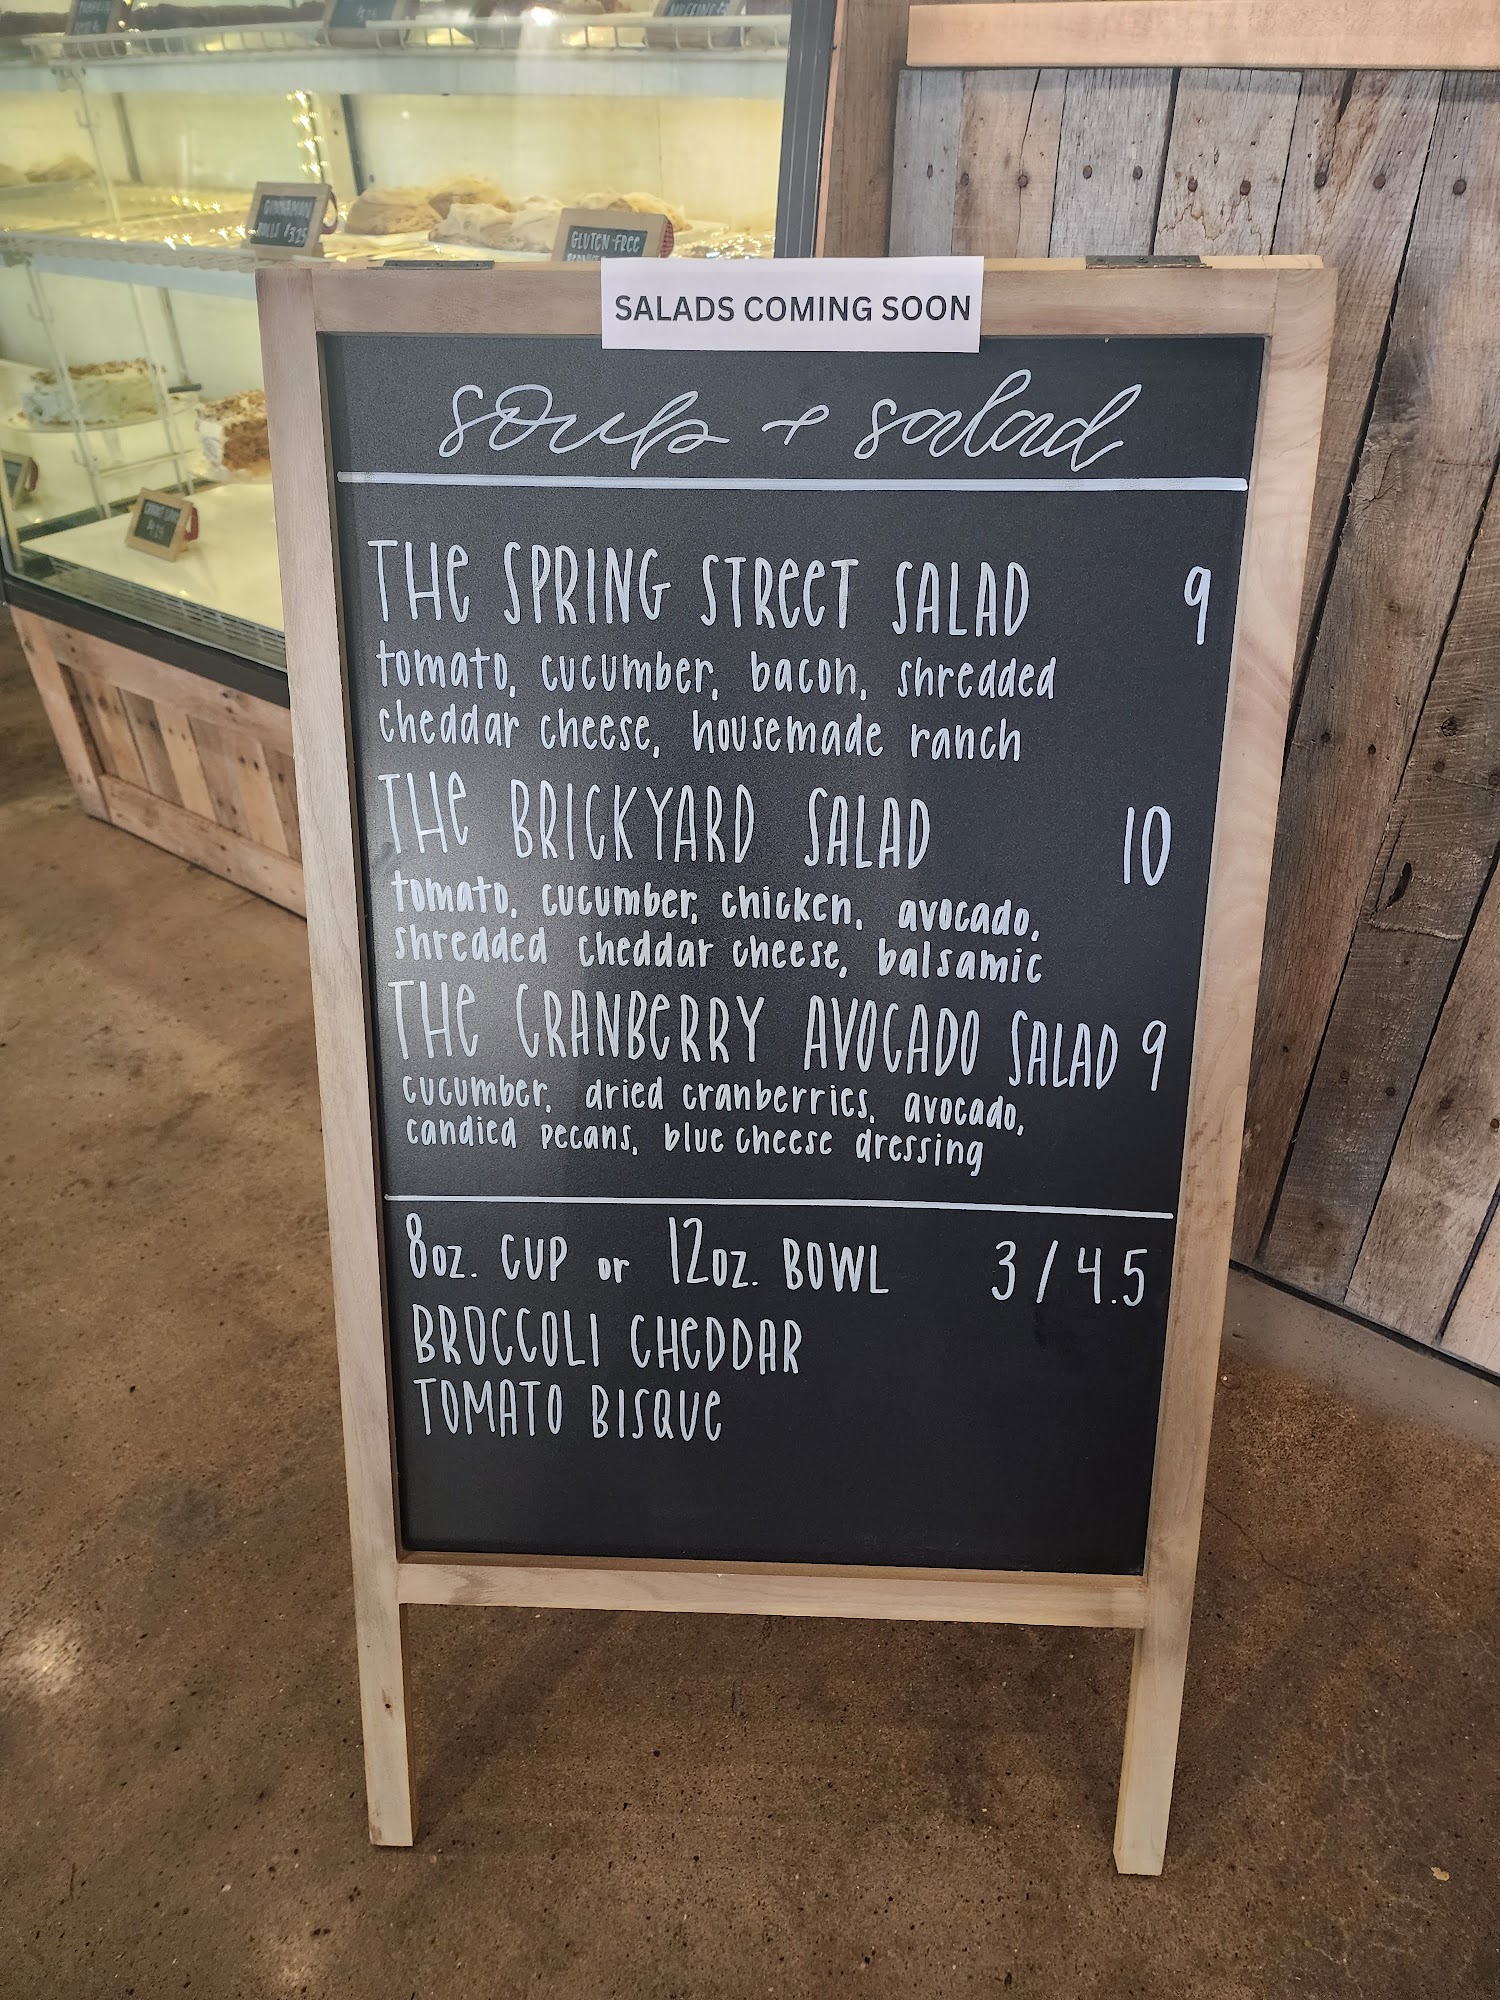 CINNAMON
ROLLS $3.25
GLUTEN FREE
SALADS COMING SOON
soup + salad
THE SPRING STREET SALAD 9
tomato, cucumber, bacon, shredded
cheddar cheese, housemade ranch
THE BRICKYARD SALAD 10
tomato, cucumber, chicken, avocado,
shredded cheddar cheese, balsamic
THE CRANBERRY AVOCADO SALAD 9
cucumber, dried cranberries, avocado,
candied pecans, blue cheese dressing
8oz. CUP or 12oz. BOWL 3 / 4.5
BROCCOLI CHEDDAR
TOMATO BISQUE